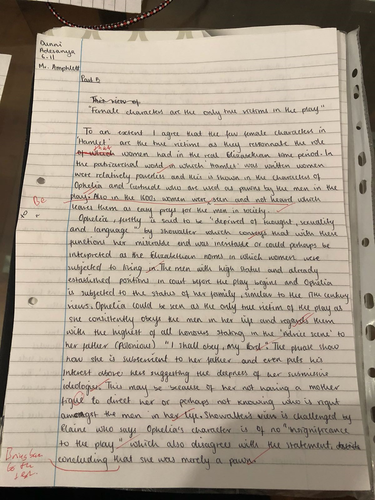 Dunni
Adesanya
6.11
Mr. Amphlett
Part B
This view of
"Female characters are the only true victims in the play."
To an extent I agree that the few female characters in
Hamlet are the true victims as they resonate the role
of which women had in the real Elizabethan time period. In
the patriarchal world in which Hamlet was written women
were relatively powerless and this is shown in the characters of
Ophelia and Gertrude who are used as pawns by the men in the
play. Also in the 1600s women were seen and not heard which
leaves them as easy preys for the men in society.
Ophelia, firstly is said to be "deprived of thought, sexuality
and language" by Showalter which conveys that with these
functions her miserable end was inevitable or could perhaps be
interpreted as the Elizabethan norms in which women were
subjected to living in. The men with high status and already
established positions in court before the play begins and Ophelia
is subjected to the status of her family, similar to the 17th century
views. Ophelia could be seen as the only true victim of the play as
she consistently obeys the men in her life and regards them
with the highest of all honours stating in the 'advice scene' to
her father (Polonious) "I shall obey, my lord". The phrase show
how she is subservient to her father and even puts his
interest above hers suggesting the deepness of her submissive
ideologies. This may be because of her not having a mother
figure to direct her or perhaps not knowing who is right
amongst the men in her life. Showalter's view is challenged by
Blaine who says Ophelia's character is of no "insignificance
to the play" which also disagrees with the statement,
concluding that she was merely a pawn.
Bring back
to the